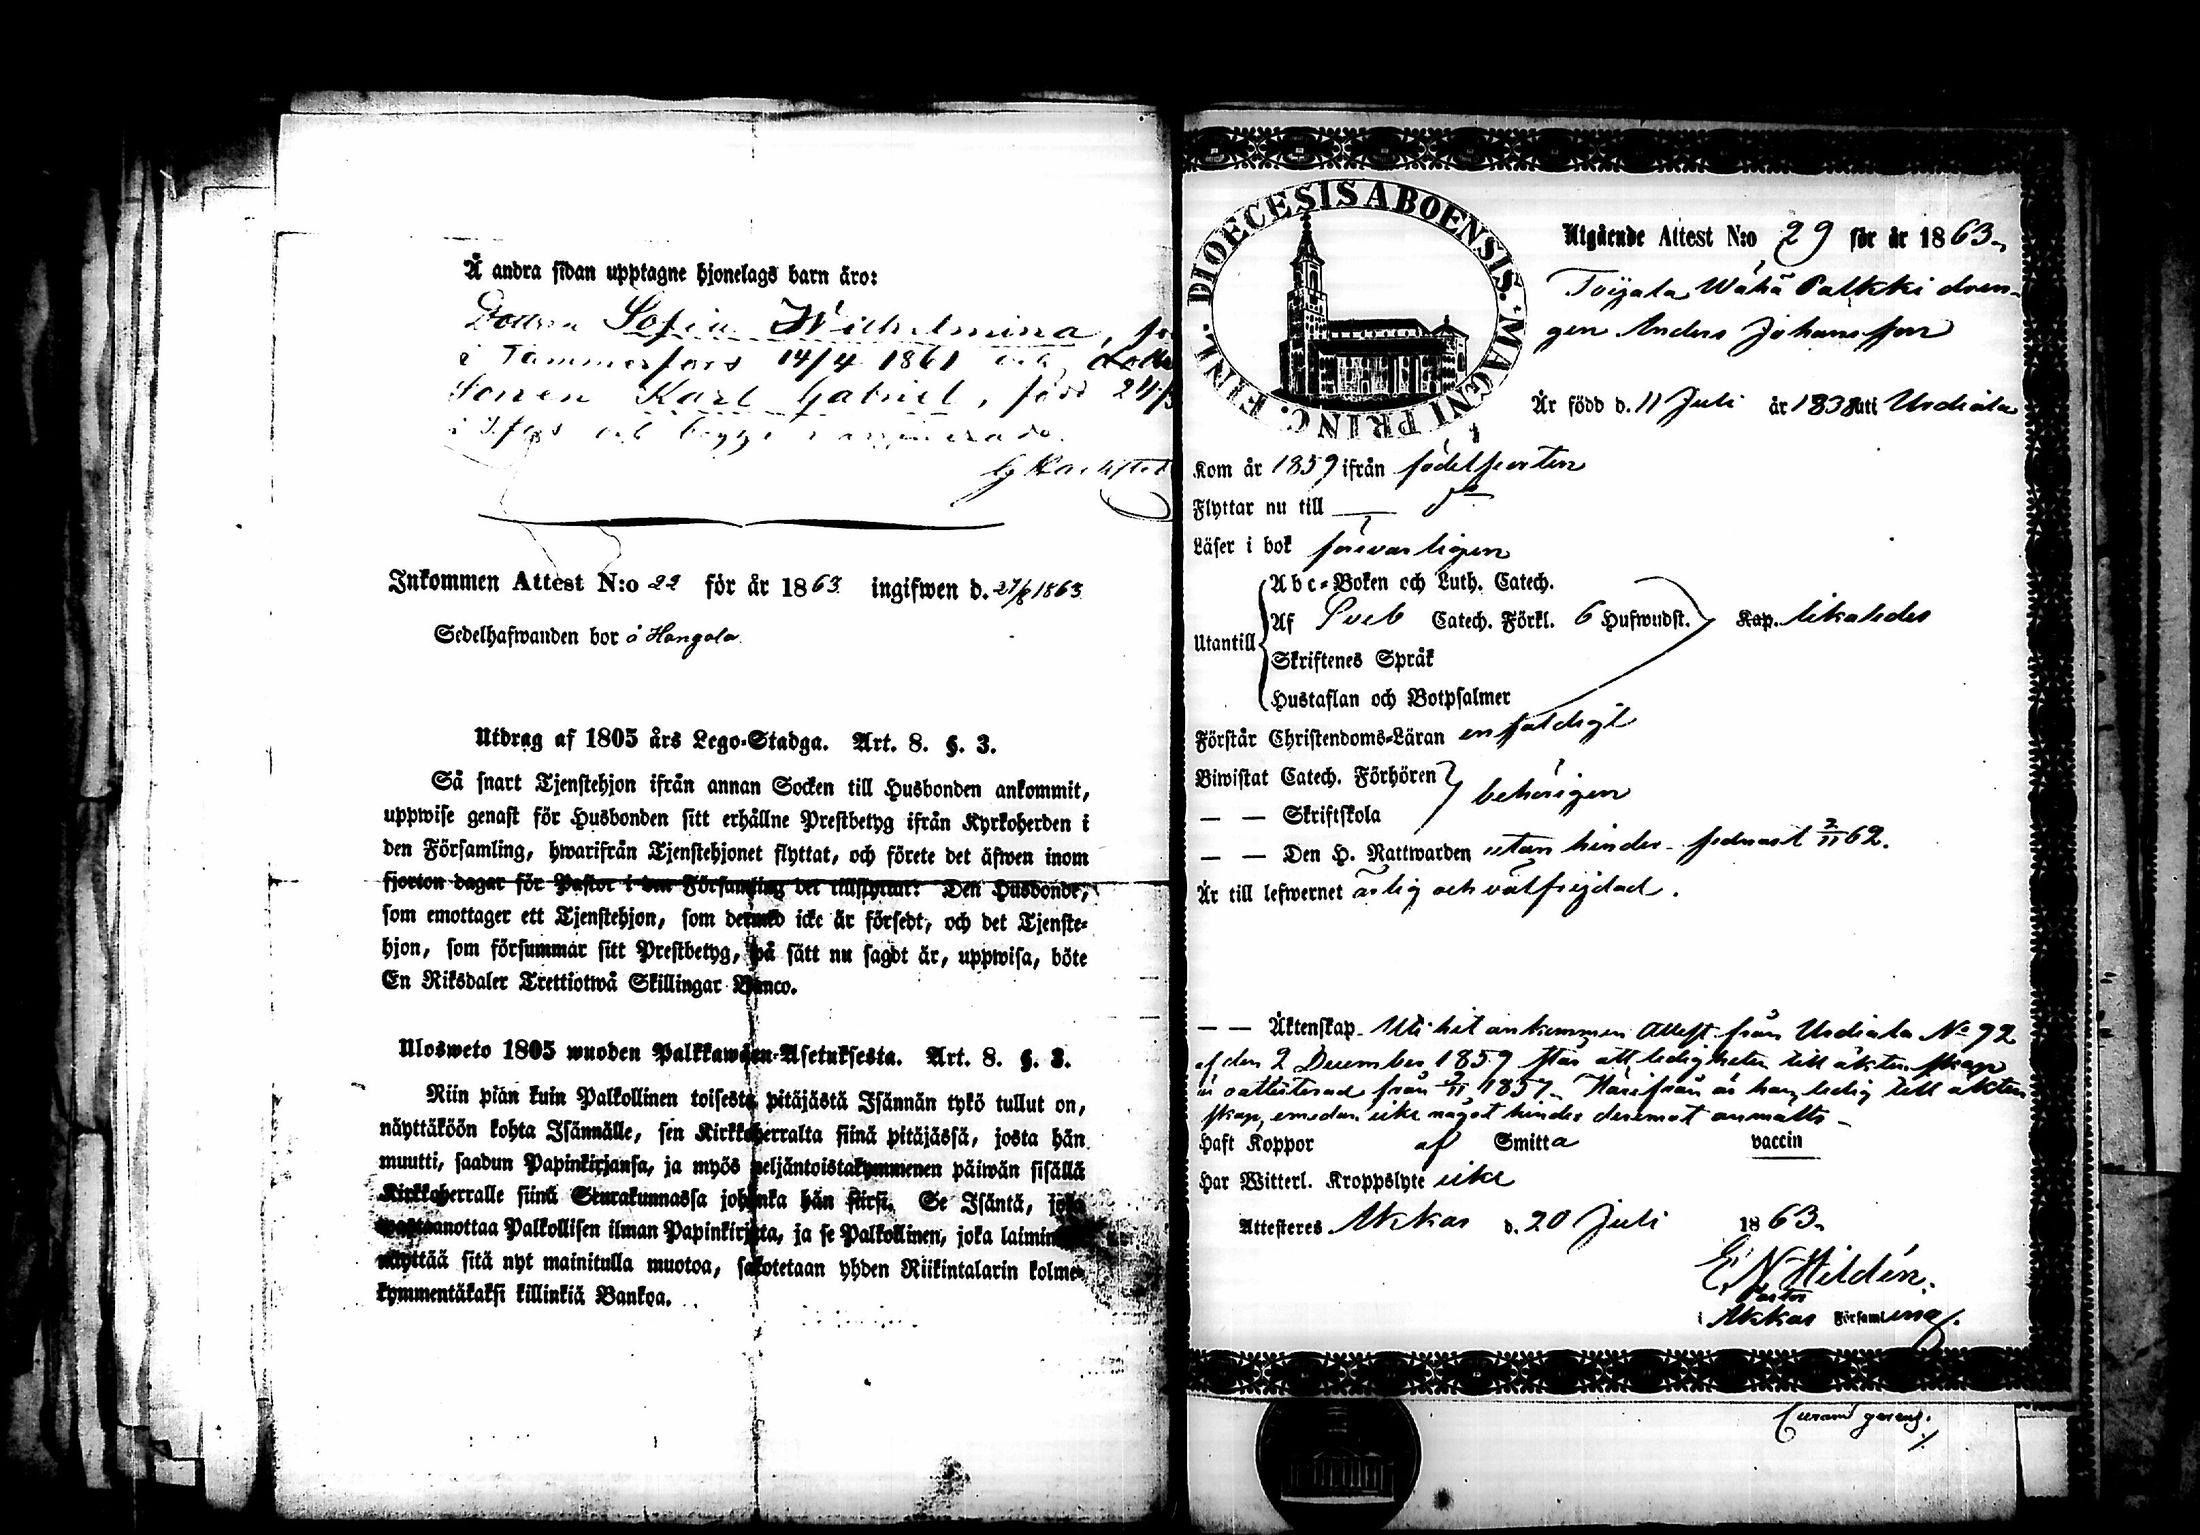 Å andra sidan upptagne hjonelags barn äro:
Dottren Sofia Wilhelmina,
i Tammerfors 14/4 1861 och
Sonen Karl Gabriel, född
i T:fors och begge vaccinerade.
Inkommen Attest N:o 22 för år 1863 ingifwen d. 27/8 1863
Sedelhafwanden bor å Hongola.
Utdrag af 1805 års Lego-Stadga. Art. 8. §. 3.
Så snart Tjenstehjon ifrån annan Socken till Husbonden ankommit,
uppwise genast för Husbonden sitt erhållne Prestbetyg ifrån Kyrkoherden i
den Församling, hwarifrån Tjenstehjonet flyttat, och förete det äfwen inom
fjorton dagar för Pastor i den Församling det tillflyttat: Den Husbonde,
som emottager ett Tjenstehjon, som dermed icke är försedt, och det Tjenste-
hjon, som försummar sitt Prestbetyg, på sätt nu sagdt är, uppwisa, böte
En Riksdaler Trettiotwå Skillingar Banco.
Ulosweto 1805 wuoden Palkkawäen-Asetuksesta. Art. 8. §. 3.
Niin pian kuin Palkollinen toisesta pitäjästä Isännän tykö tullut on,
näyttäköön kohta Isännälle, sen Kirkkoherralta siinä pitäjässä, josta hän
muutti, saadun Papinkirjansa, ja myös neljäntoistakymmenen päiwän sisällä
Kirkkoherralle siinä Seurakunnassa johonka hän siirsi. Se Isäntä, joka
wastaanottaa Palkollisen ilman Papinkirjata, ja se Palkollinen, joka laimin
näyttää sitä nyt mainitulla muotoa, sakotetaan yhden Riikintalarin kolme-
kymmentäkaksi killinkiä Bankoa.
DIOECESIS ABOENSIS. MAGNI PRINC. FINL.
Utgående Attest N:o 29 för år 1863.
Toijala Wähä Palkki dren-
gen Anders Johansson
Är född d. 11 Juli år 1838 uti Urdiala
Kom år 1859 ifrån födelseorten
Flyttar nu till — do
Läser i bok försvarligen
Abc-Boken och Luth. Catech.
Utantill Af Sveb Catech. Förkl. 6 Hufwudst. Kap. likaledes
Skriftenes Språk
Hustaflan och Botpsalmer
Förstår Christendoms-Läran enfaldigt
Biwistat Catech. Förhören
— — Skriftskola behörigen
— — Den H. Nattwarden utan hinder senast 2/11 62.
Är till lefwernet ärlig och välfrejdad.
— — Äktenskap. Uti hit ankommen Attest från Urdiala No 92
af den 2 December 1859 står att ledigheten till äktenskap
är oattesterad från 9/11 1857. Härifrån är han ledig till äkten
skap, emedan icke något hinder deremot anmälts –
Haft Koppor af Smitta vaccin
Har Witterl. Kroppslyte icke
Attesteres Akkas d. 20 Juli 1863.
E N Hildén.
Pastor
i Akkas Församling.
Curam gerens.